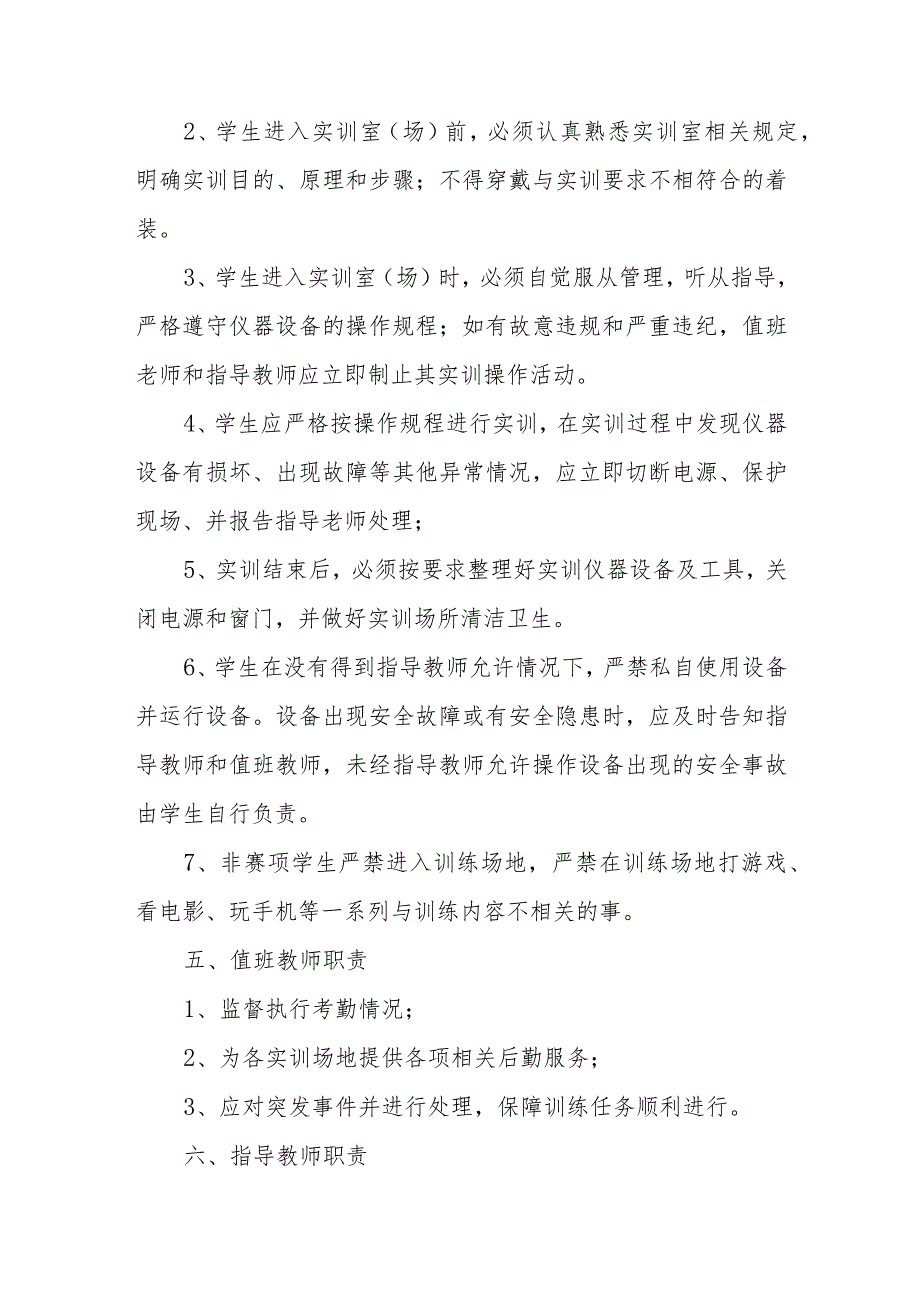 2、学生进入实训室（场）前，必须认真熟悉实训室相关规定，
明确实训目的、原理和步骤；不得穿戴与实训要求不相符合的着
装。
3、学生进入实训室（场）时，必须自觉服从管理，听从指导，
严格遵守仪器设备的操作规程；如有故意违规和严重违纪，值班
老师和指导教师应立即制止其实训操作活动。
4、学生应严格按操作规程进行实训，在实训过程中发现仪器
设备有损坏、出现故障等其他异常情况，应立即切断电源、保护
现场、并报告指导老师处理；
5、实训结束后，必须按要求整理好实训仪器设备及工具，关
闭电源和窗门，并做好实训场所清洁卫生。
6、学生在没有得到指导教师允许情况下，严禁私自使用设备
并运行设备。设备出现安全故障或有安全隐患时，应及时告知指
导教师和值班教师，未经指导教师允许操作设备出现的安全事故
由学生自行负责。
7、非赛项学生严禁进入训练场地，严禁在训练场地打游戏、
看电影、玩手机等一系列与训练内容不相关的事。
五、值班教师职责
1、监督执行考勤情况；
2、为各实训场地提供各项相关后勤服务；
3、应对突发事件并进行处理，保障训练任务顺利进行。
六、指导教师职责